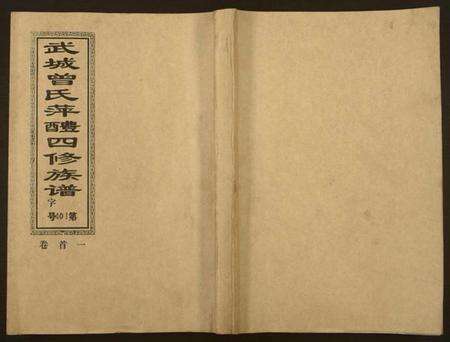 武城曾氏萍醴四修族谱
字
第101号
卷首一